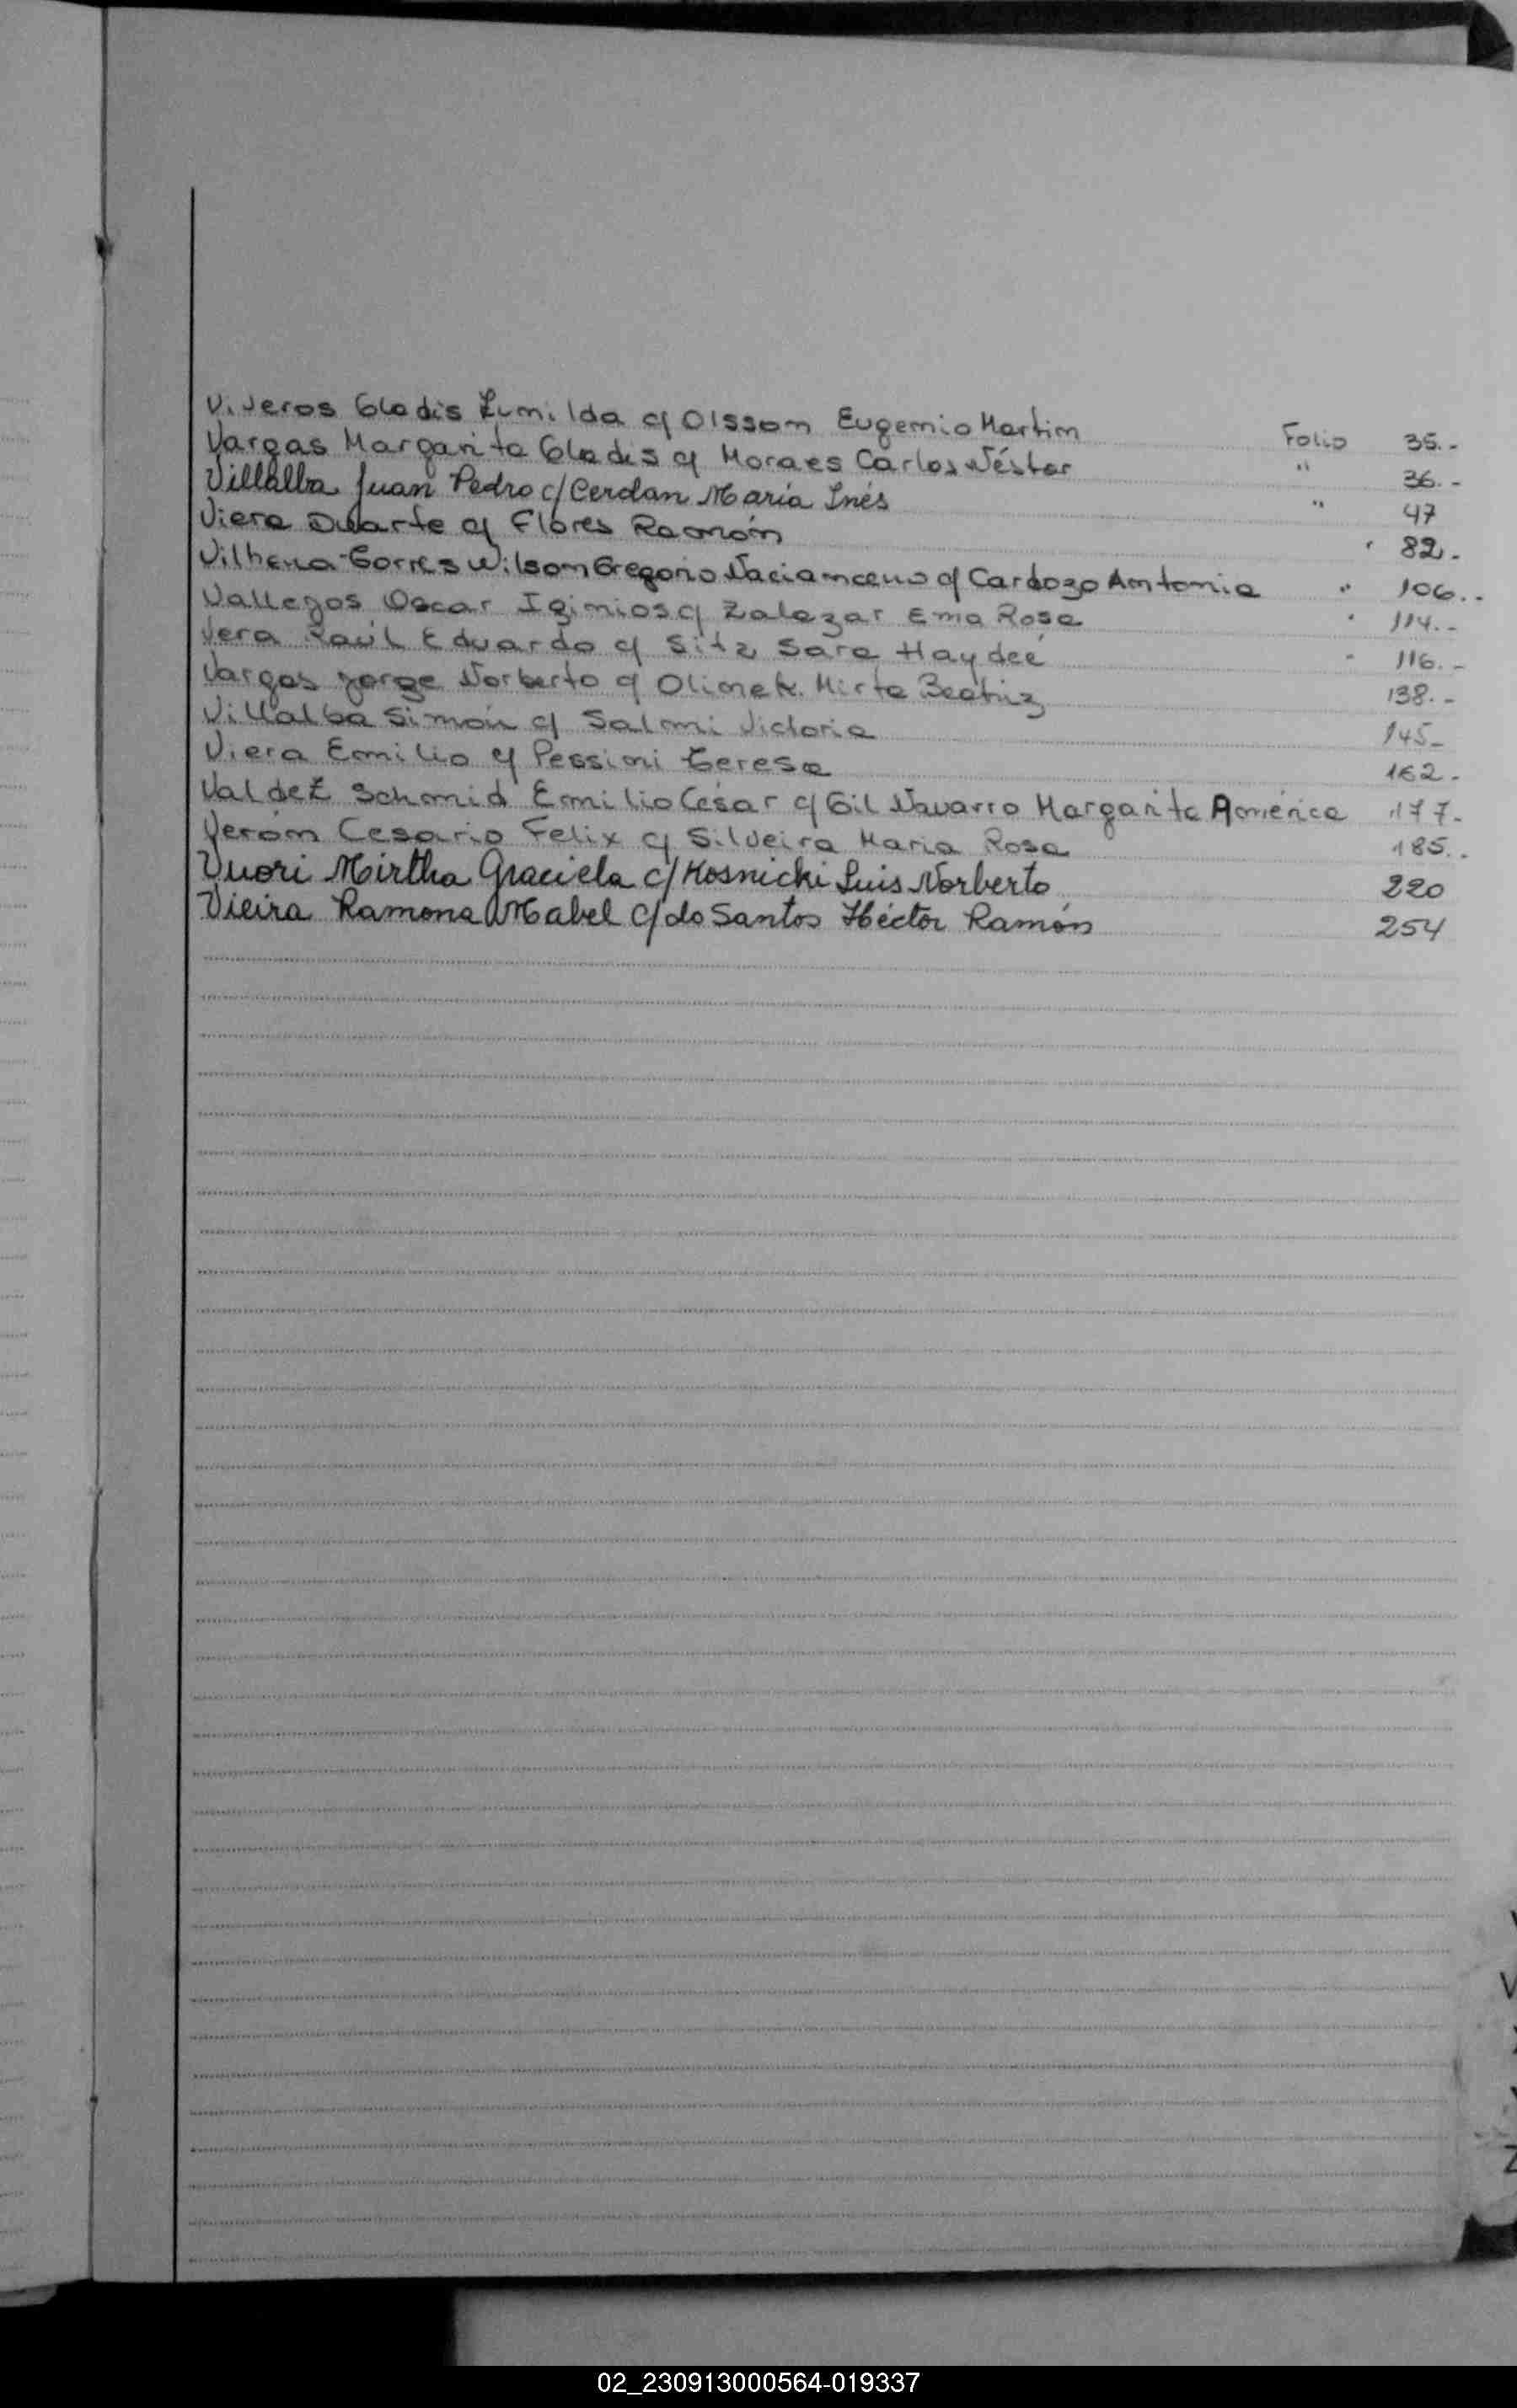 Viveros Gladis Zunilda c/ Olsson Eugenio Martin Folio 35.-
Vargas Margarita Gladis c/ Moraes Carlos Néstor " 36.-
Villalba Juan Pedro c/ Cerdan María Inés " 47
Viera Duarte c/ Flores Ramón " 82.-
Vilhena Torres Wilson Gregorio c/ Cardozo Antonia " 106..
Vallejos Oscar Iginios c/ Zalazar Ema Rosa " 114.-
Vera Raúl Eduardo c/ Sitz Sara Haydeé " 116.-
Vargas Jorge Norberto c/ Mirta Beatriz 138.-
Villalba Simón c/ Salmi Victoria 145-
Viera Emilio c/ Pessini Teresa 162.-
Valdez Schmid Emilio César c/ Gil Navarro Margarita América 177.-
Verón Cesario Felix c/ Silveira Maria Rosa 185..
Vuori Mirtha Graciela c/ Kosnicki Luis Norberto 220
Vieira Ramona Mabel c/ do Santos Héctor Ramón 254
V
Z
02_230913000564-019337